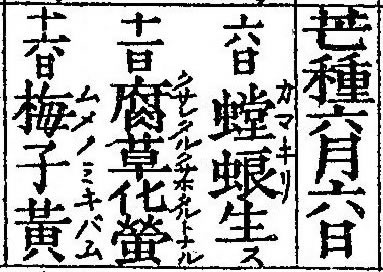 芒種六月六日
六日 螳蜋生ス
カマキリ
十一日 腐草化螢
クサレタルクサホタルトナル
十六日 梅子黃
ムメノミキバム